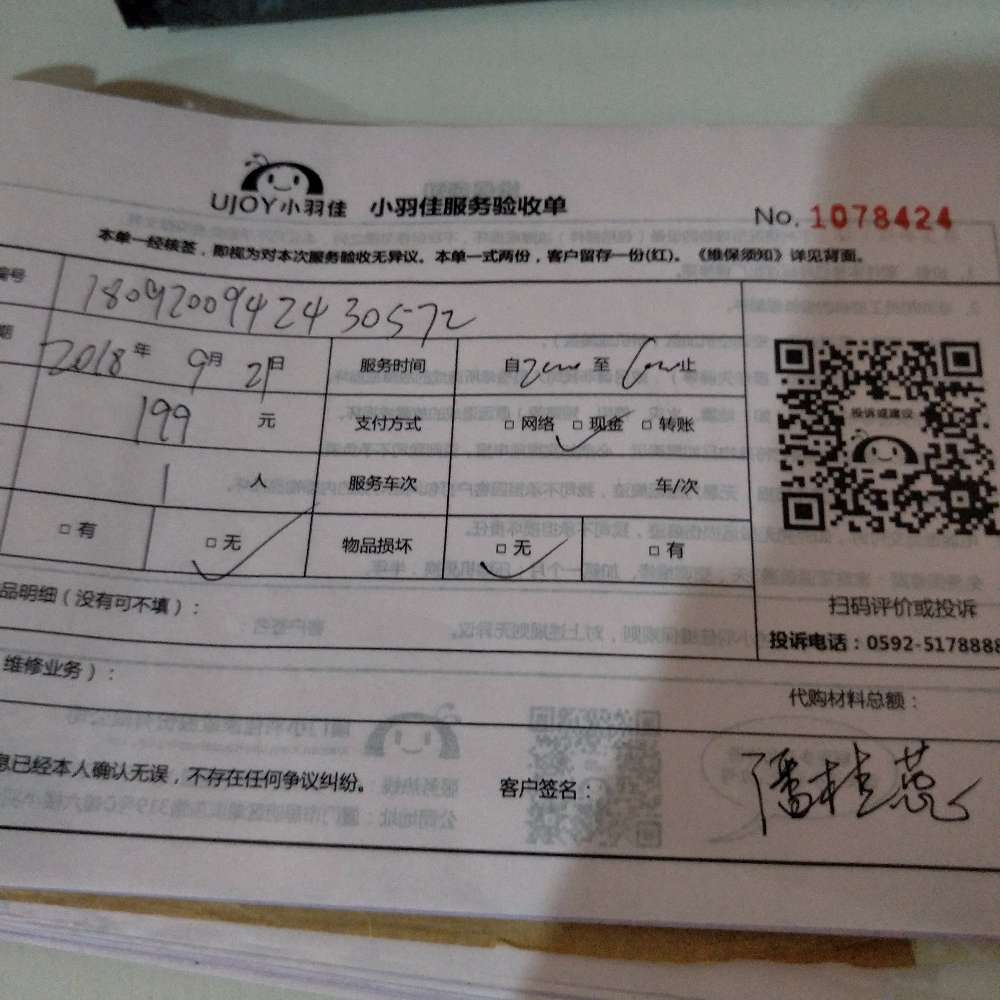 UJOY小羽佳 小羽佳服务验收单
No. 1078424
本单一经核签，即视为对本次服务验收无异议。本单一式两份，客户留存一份(红)。《维保须知》详见背面。
编号 18092009424430572
期 2018年 9月 21日 服务时间 自 至 止
199 元 支付方式 □ 网络 □ 现金 □ 转账
1 人 服务车次 车/次
□ 有 □ 无 物品损坏 □ 无 □ 有
投诉或建议
扫码评价或投诉
投诉电话：0592-5178888
品明细（没有可不填）：
维修业务）：
代购材料总额：
息已经本人确认无误，不存在任何争议纠纷。 客户签名： 潘桂蕊